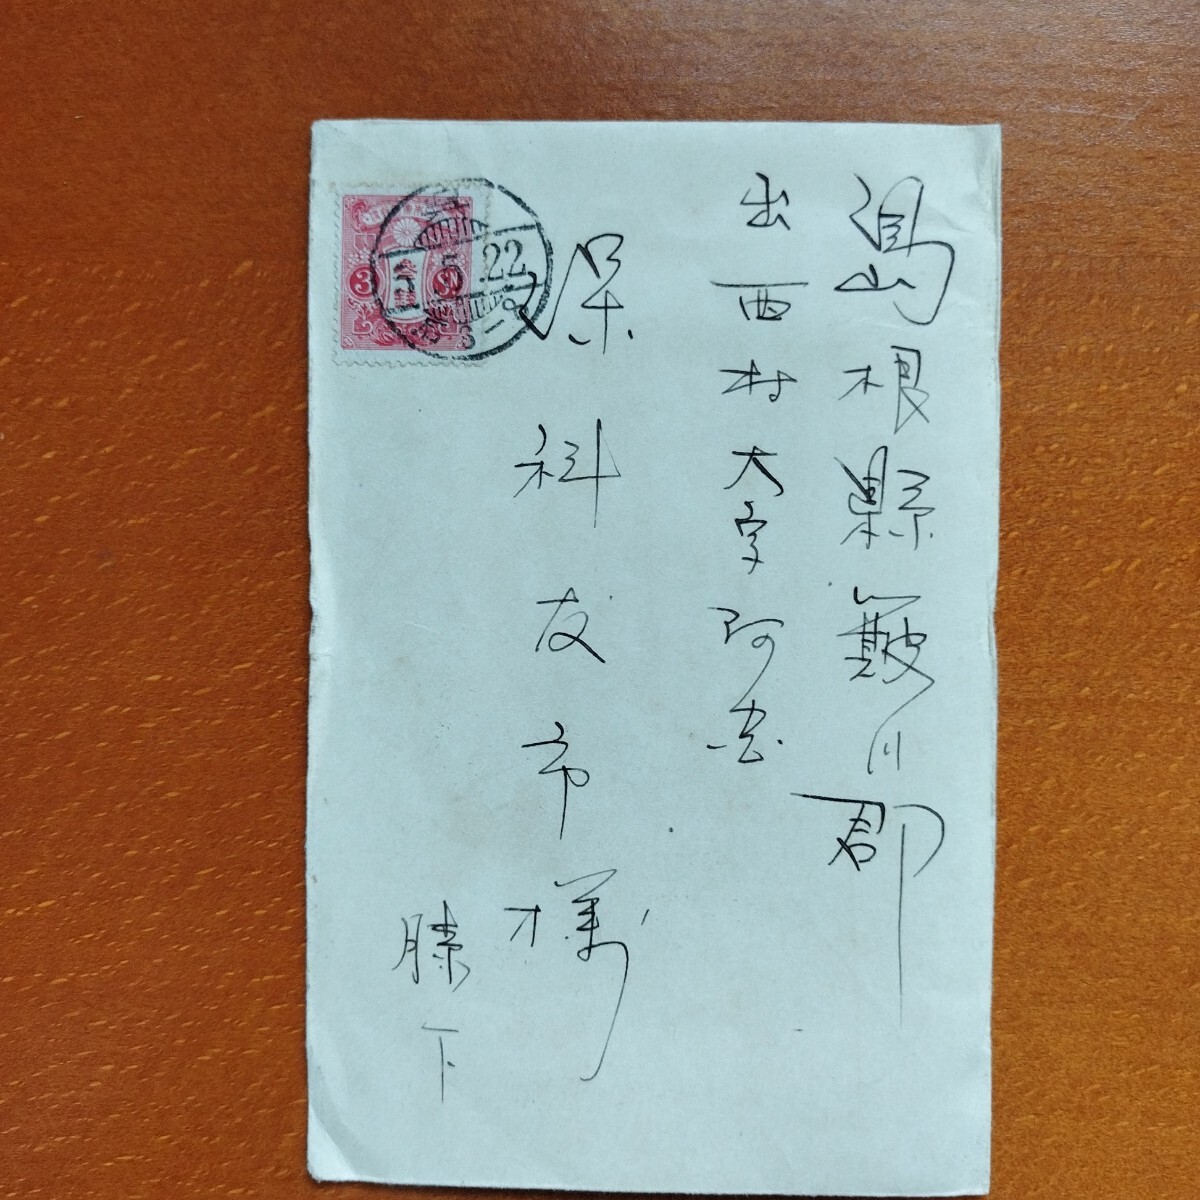 島根縣簸川郡
出西村大字阿宮
保科友市様
膝下
3 3
5.5.22